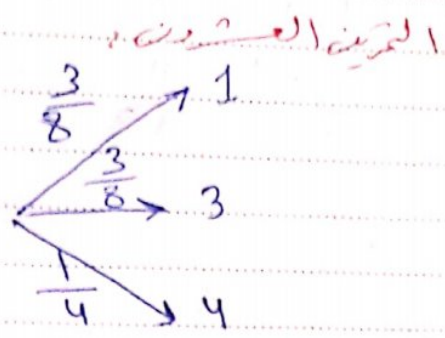 التمرين العشرون :
3/8 1
3/8 3
1/4 4